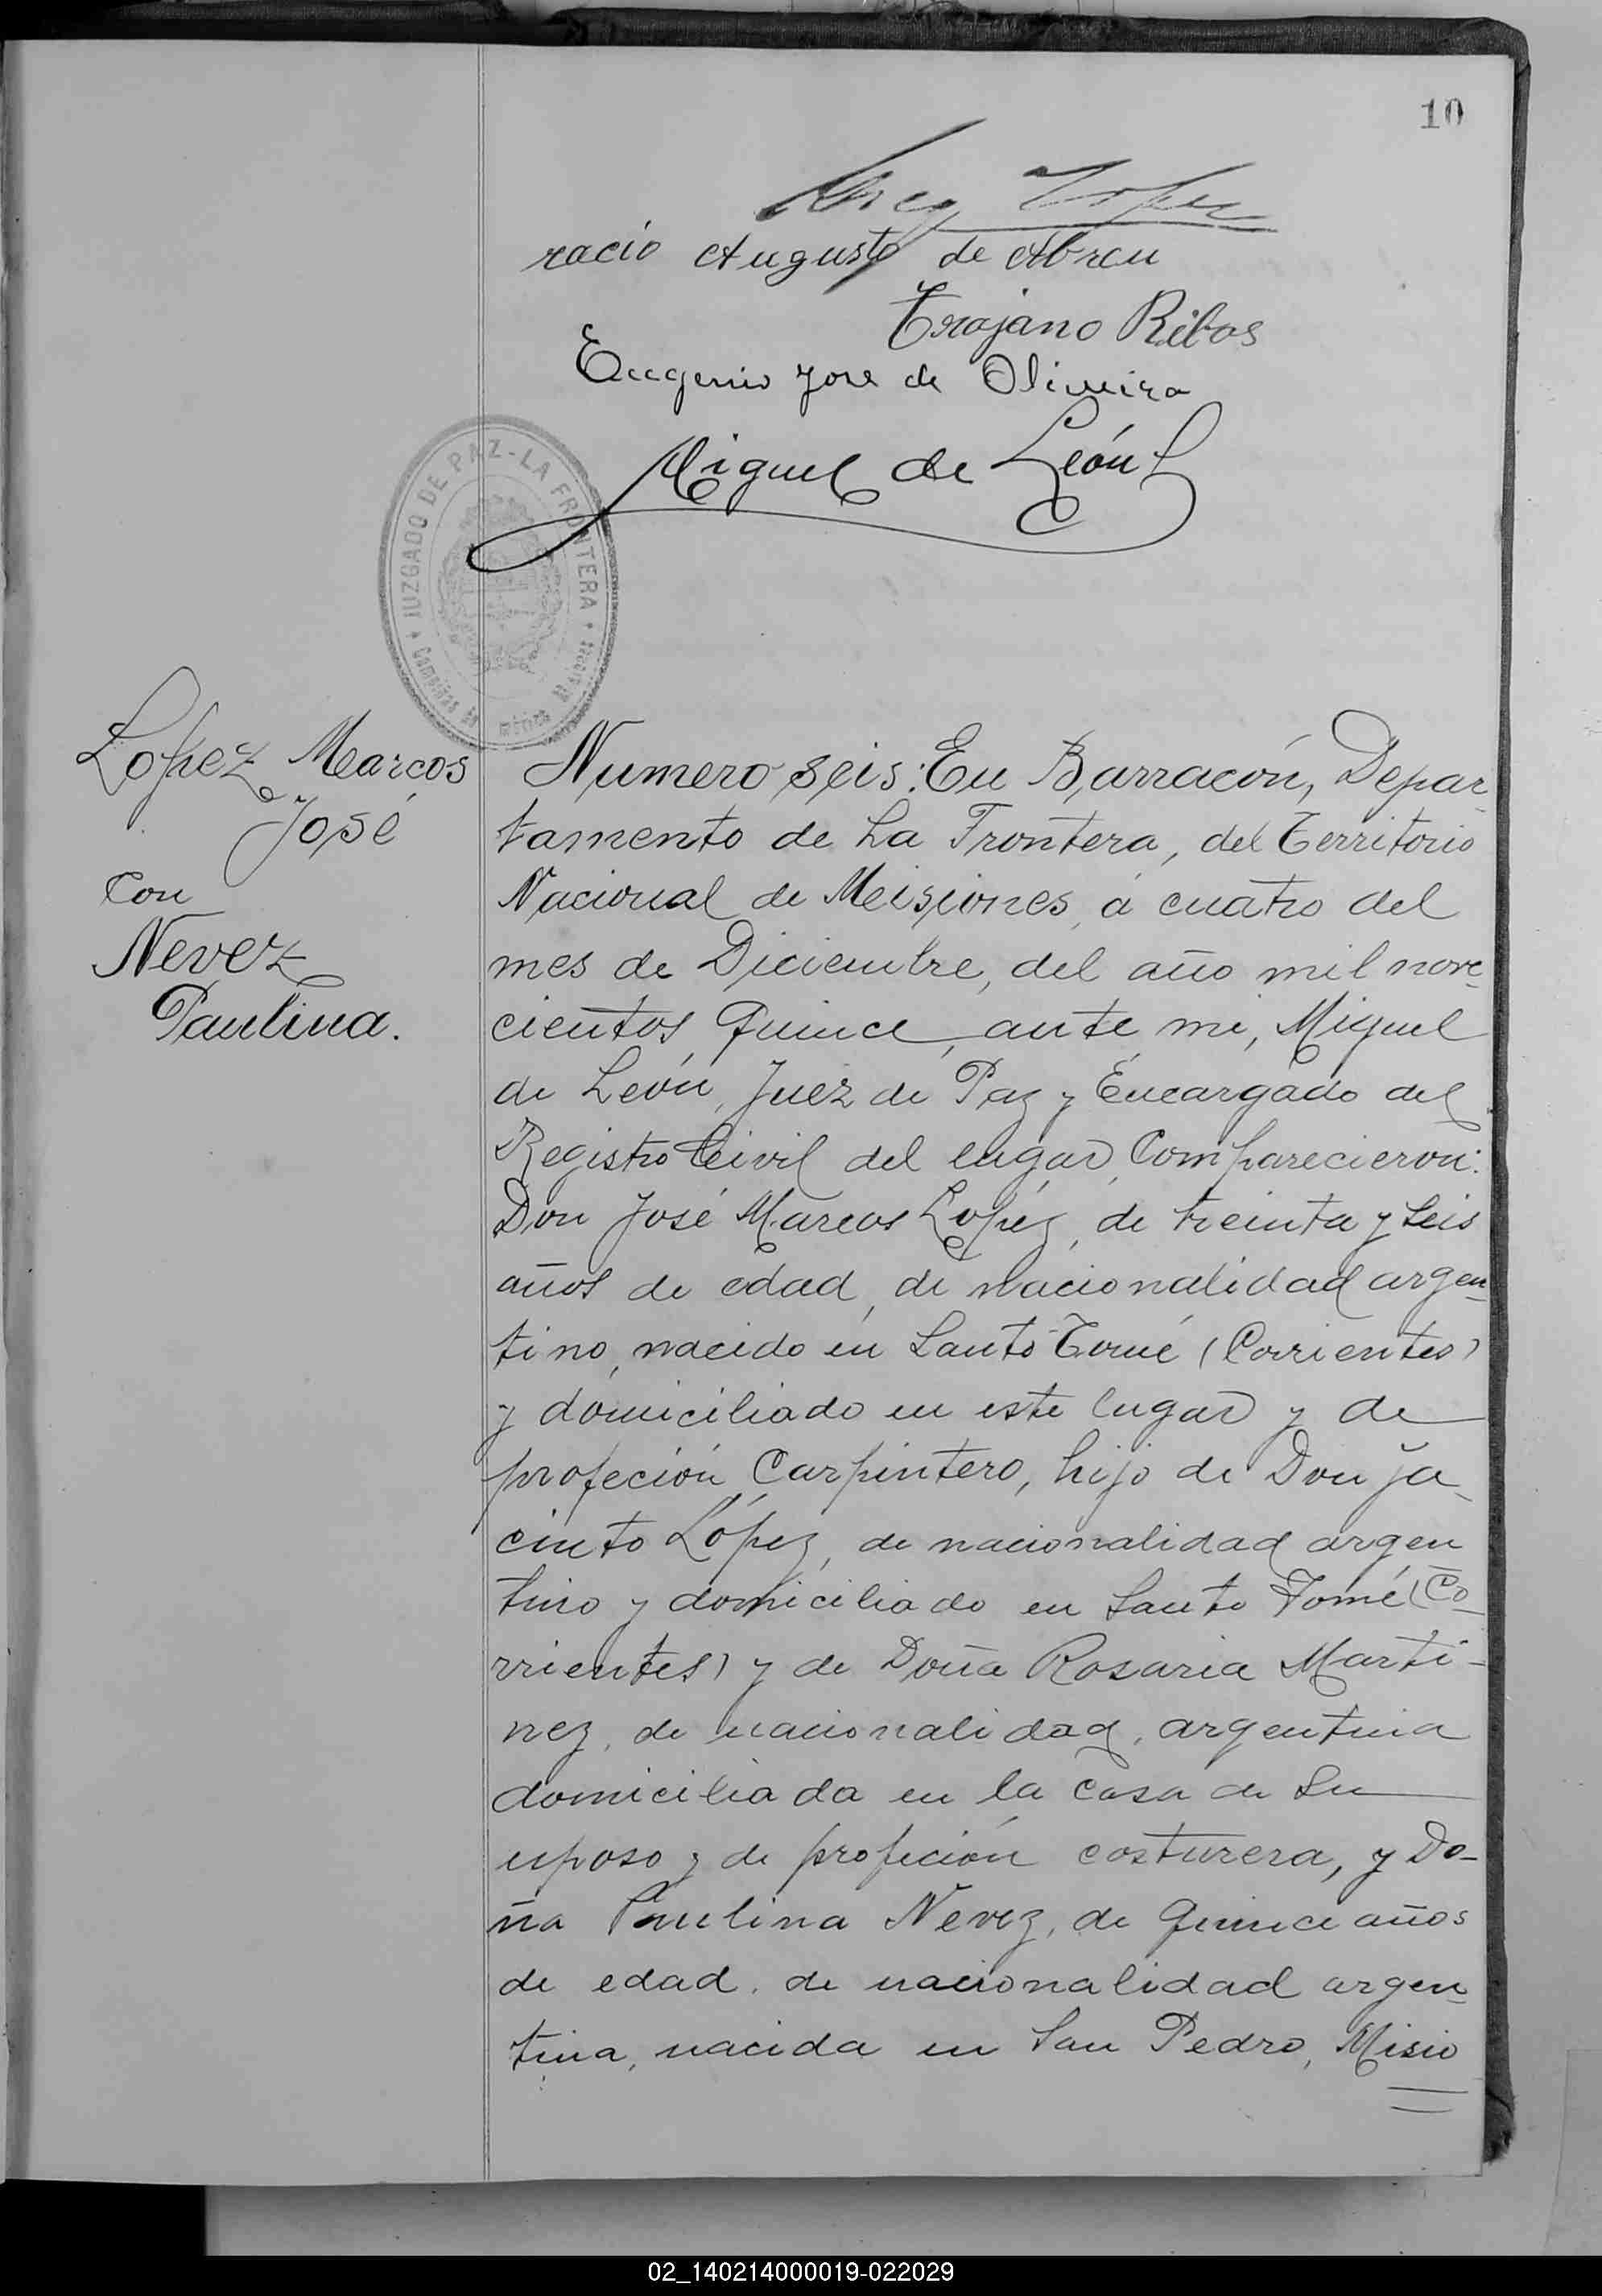 10
Lopez
racio Augusto de Abreu
Trajano Ribas
Eugenio Jose de Oliveira
Miguel de León
JUZGADO DE PAZ - LA FRONTERA
Lopez Marcos
José
Con
Nevez
Paulina.
Numero seis: En Barracón, Depar-
tamento de La Frontera, del Territorio
Nacional de Meisiones, á cuatro del
mes de Diciembre, del año mil nove-
cientos quince, ante mi, Miguel
de León, Juez de Paz y Encargado del
Registro Civil del lugar, Comparecieron:
Don José Marcos Lopéz, de treinta y seis
años de edad, de nacionalidad argen-
tino, nacido en Santo Tomé (Corrientes)
y domiciliado en este lugar y de
profeción Carpintero, hijo de Don Ja-
cinto López, de nacionalidad argen
tino y domiciliado en Santo Tomé (Co-
rrientes) y de Doña Rosaria Marti-
nez, de nacionalidad, argentina
domiciliada en la casa de su
esposo y de profeción costurera, y Do-
ña Paulina Nevez, de quince años
de edad, de nacionalidad argen-
tina, nacida en San Pedro, Misio
02_140214000019-022029